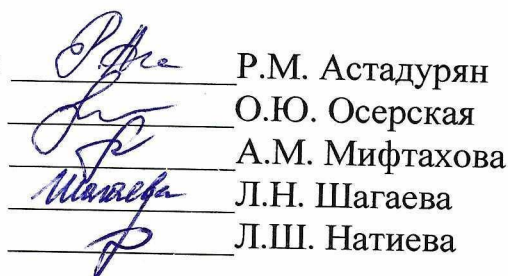 Р.М. Астадурян
О.Ю. Осерская
А.М. Мифтахова
Шагаева Л.Н. Шагаева
Л.Ш. Натиева